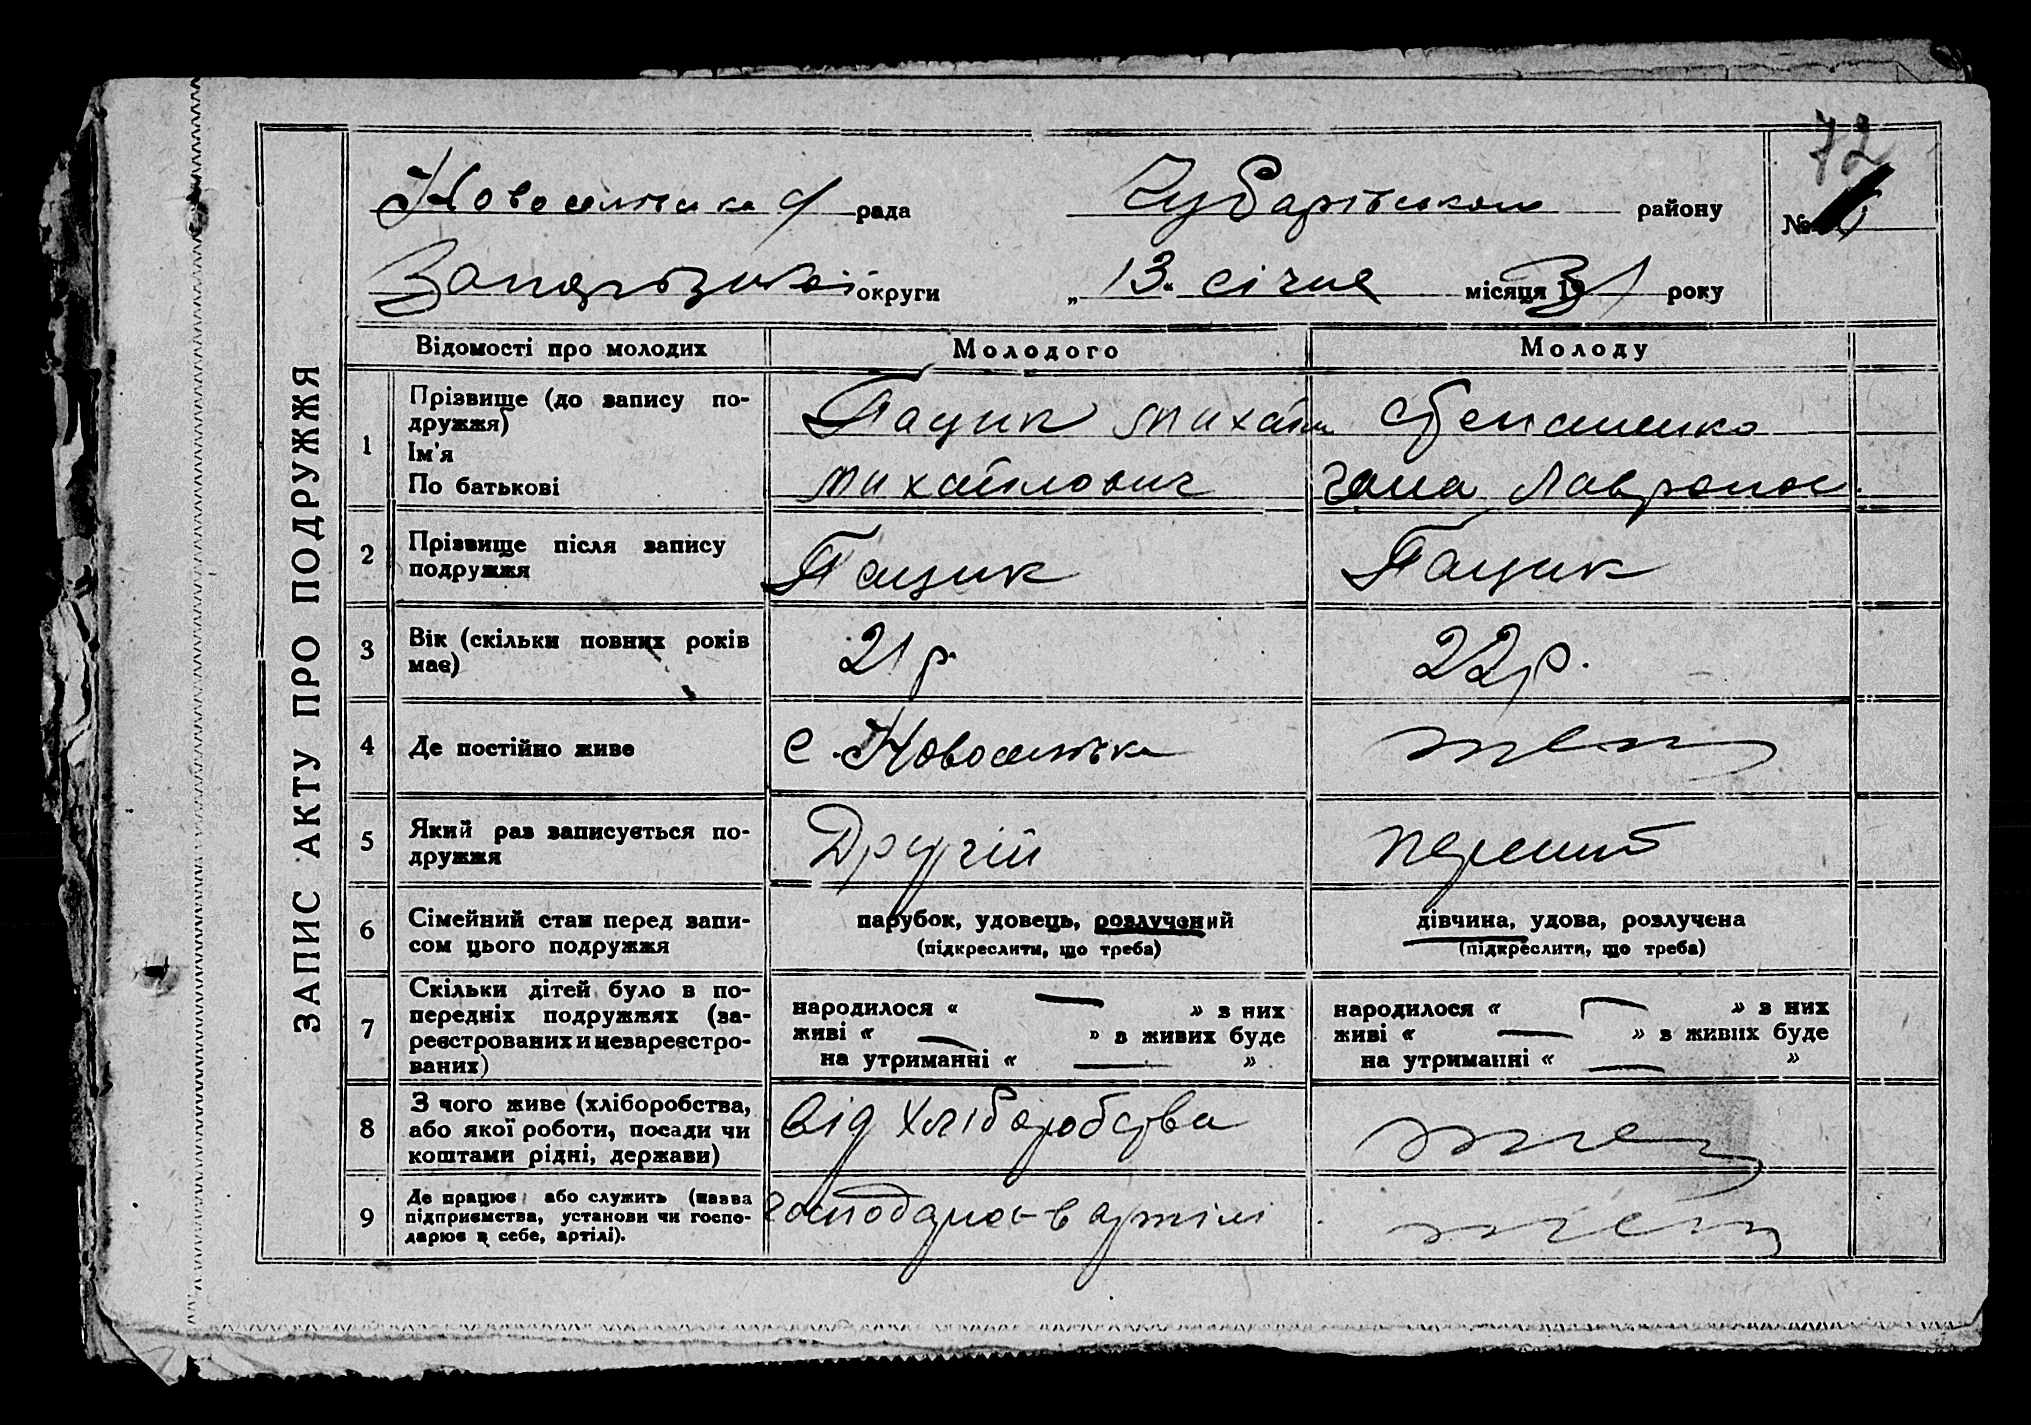 72
Новоселівська рада Чубарівського району №
Запорізької округи „13“ січня місяця 1931 року
ЗАПИС АКТУ ПРО ПОДРУЖЖЯ
Відомості про молодих Молодого Молоду
1 Прізвище (до запису по-
дружжя) Пацик Михайло Степаненко
Ім'я
По батькові Михайлович Гана Лавровна
2 Прізвище після запису
подружжя Пацик Пацик
3 Вік (скільки повних років
має) 21 р. 22 р.
4 Де постійно живе с. Новоселівка теж
5 Який раз записується по-
дружжя Другій перший
6 Сімейний стан перед запи-
сом цього подружжя парубок, удовець, розлучений дівчина, удова, розлучена
(підкреслити, що треба) (підкреслити, що треба)
7 Скільки дітей було в по-
передніх подружжях (за-
реєстрованих и незареєстро-
ваних)
народилося « — » з них
живі « — » з живих буде
на утриманні « — »
народилося « — » з них
живі « — » з живих буде
на утриманні « — »
8 З чого живе (хліборобства,
або якої роботи, посади чи
коштами рідні, держави) від хліборобства теж
9 Де працює або служить (назва
підприємства, установи чи госпо-
дарює в себе, артілі). в артілі теж